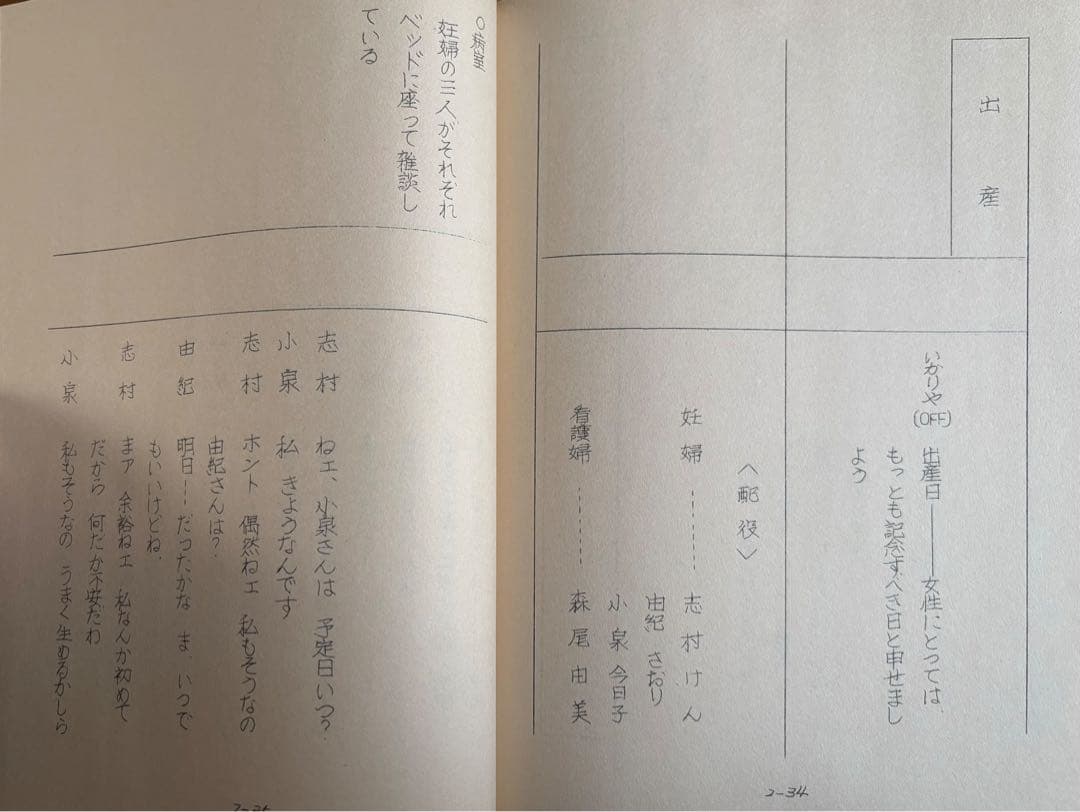 出産
いかりや(OFF) 出産日――女性にとっては、
もっとも記念すべき日と申せまし
ょう
〈配役〉
妊婦------志村けん
由紀さおり
小泉今日子
看護婦------森尾由美
2-34
○病室
妊婦の三人がそれぞれ
ベッドに座って雑談し
ている
志村 ねェ、小泉さんは 予定日いつ?
小泉 私 きょうなんです
志村 ホント 偶然ねェ 私もそうなの
由紀さんは?
由紀 明日――だったかな ま、いつで
もいいけどね、
志村 まァ 余裕ねェ 私なんか初めて
だから 何だか不安だわ
小泉 私もそうなの うまく生めるかしら